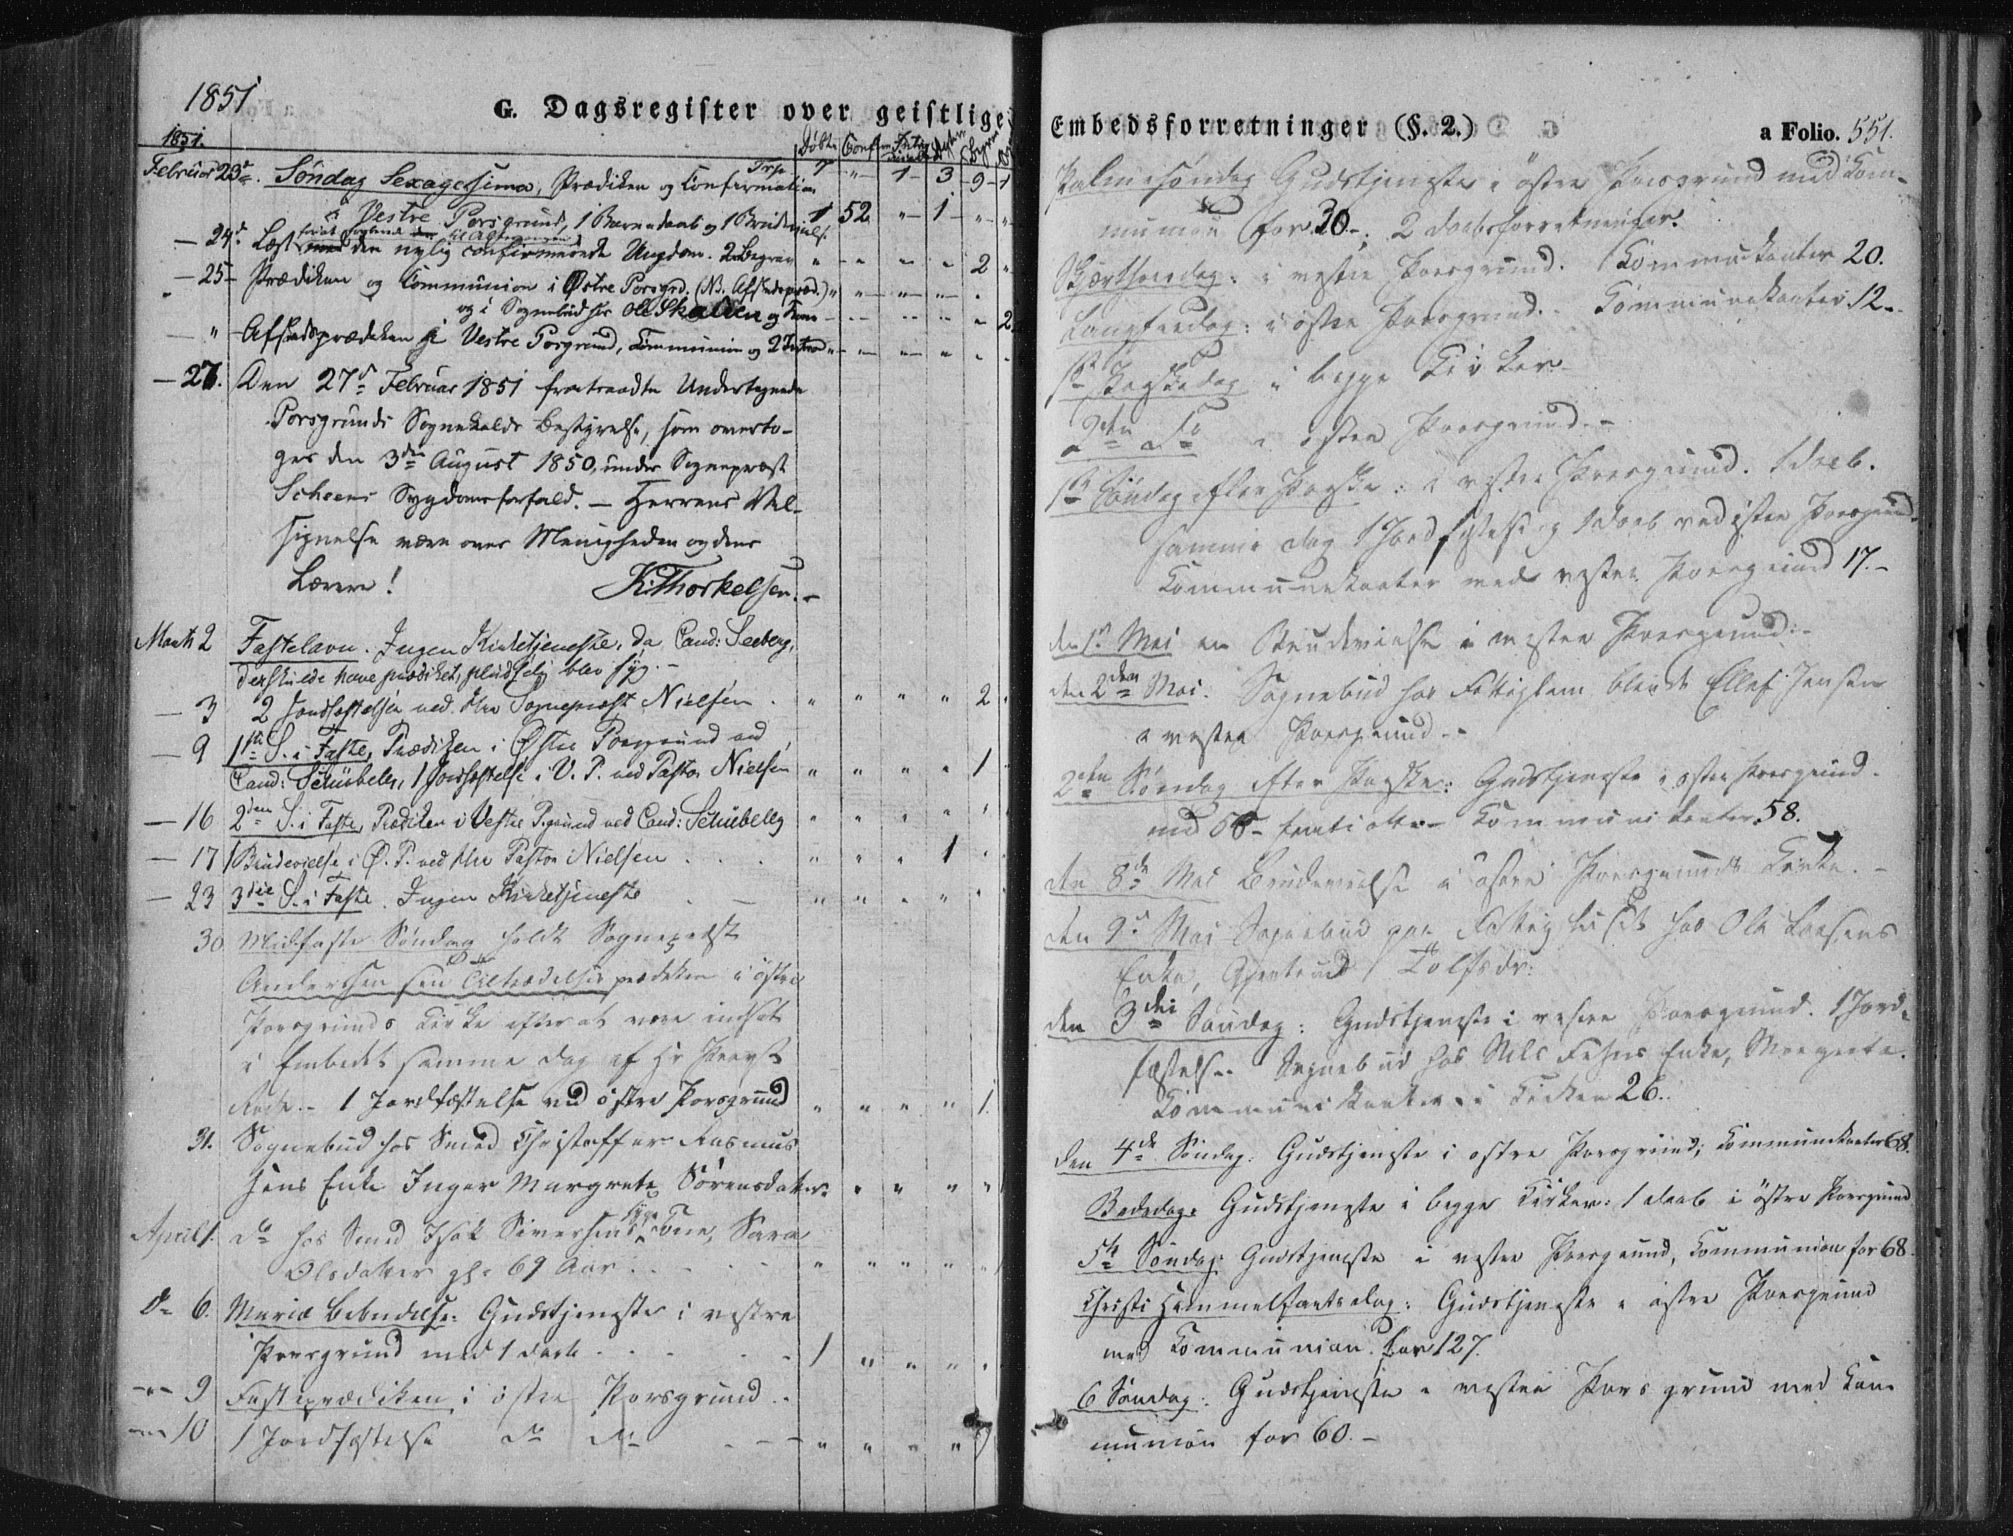 1851
G. Dagsregister over geistlige
1851.
Døbte Confirm
Februar 23de. Søndag Sexagesima, Prædiken og Confirmation
i Vestre Porsgrund, 1 Barnedaab og 1 Brudevielse 1 52 " 1 " "
— 24d. Læst den nylig confirmerede Ungdom. 2 Begrav " " " " 2 "
— 25 — Prædiken og Communion i Østre Porsgrd. (NB. Afskedspræd.)
og i Sognebud hos Ole Skalden og Kone 2
— " — Afskedsprædiken i Vestre Porsgrund, Communion og 2 Introd
— 27. Den 27de Februar 1851 fratraadte Undertegnede
Porsgrunds Sognekalds Bestyrelse, som overto-
ges den 3die August 1850, under Sognepræst
Scheens Sygdomsforfald. — Herrens Vel-
signelse være over Menigheden og dens
Lærere! K. Thorkelsen. —
Marts 2 Fastelavn. Ingen Kirketjeneste, da Cand: Seeberg,
der skulde have prædiket, pludselig blev syg. —
— 3 2 Jordfæstelser ved Hr Sognepræst Nielsen . " " " " 2
— 9 1ste S. i Faste, Prædiken i Østre Porsgrund ved
Cand: Schübeler, 1 Jordfæstelse i V. P. ved Pastor Nielsen " " " " 1
— 16 2den S. i Faste, Prædiken i Vestre Porsgrund ved Cand: Schübeler " " " " "
— 17 1 Brudevielse i Ø. P. ved Hr Pastor Nielsen . . . " " " 1
— 23 3die S. i Faste. Ingen Kirketjeneste " " " "
30 Midfaste Søndag holdt Sognepræst
Andersen sin Tiltrædelsesprædiken i østre
Porsgrunds Kirke efter at være indsat
i Embedet samme Dag af Hr Provst
Rode. — 1 Jordfæstelse ved østre Porsgrund " " " " 1.
31. Sognebud hos Smed Christoffer Rasmus
sens Enke Inger Margrete Sørensdatter " " " "
April 1. do hos Smed Isak Sivertsens syge Kone, Sara
Olsdatter gl. 69 Aar . . . . " " " " "
do 6. Mariæ Bebudelse. Gudstjeneste i vestre
Porsgrund med 1 Daab . . . . 1 " " " "
—"— 9 Fasteprædiken i østre Porsgrund. .
—"— 10 1 Jordfæstelse do do . — — " " " "
Embedsforretninger (§. 2.)
a Folio. 551.
Palmesøndag Gudstjeneste i østre Porsgrund med Kom-
munion for 30 —; 2 Daabsforretninger.
Skjærthorsdag: i vestre Porsgrund. Kommunikanter 20.
Langfredag: i østre Porsgrund. Kommunikanter 12.
1ste Paaskedag i begge Kirker
2den do i østre Porsgrund. —
1ste Søndag efter Paaske: i vestre Porsgrund. 1 Daab.
samme dag 1 Jordfæstelse og 1 Daab ved østre Porsgrund.
Kommunikanter ved vestre Porsgrund 17. —
den 1ste Mai en Brudevielse i vestre Porsgrund. —
den 2den Mai. Sognebud hos Fattiglem blinde Ellef Jensen
i vestre Porsgrund. —
2den Søndag efter Paaske: Gudstjeneste i østre Porsgrund.
med 58 — femti otte — Kommunikanter 58.
den 8de Mai Brudevielse i østre Porsgrunds Kirke. —
den 9de Mai Sognebud paa Fattighuset hos Ole Larsens
Enke, Gjertrud Tolfsdr:
den 3die Søndag: Gudstjeneste i vestre Porsgrund. 1 Jord-
fæstelse. Sognebud hos Nils Enke, Margrete.
Kommunikanter i Kirken 26.
den 4de Søndag. Gudstjeneste i østre Porsgrund; Kommunikanter 68.
Bededag. Gudstjeneste i begge Kirker: 1 Daab i østre Porsgrund
5te Søndag. Gudstjeneste i vestre Porsgrund, Kommunion for 68.
Christi Himmelfartsdag: Gudstjeneste i østre Porsgrund
med Kommunion for 127.
6 Søndag: Gudstjeneste i vestre Porsgrund med Kom-
munion for 60. —